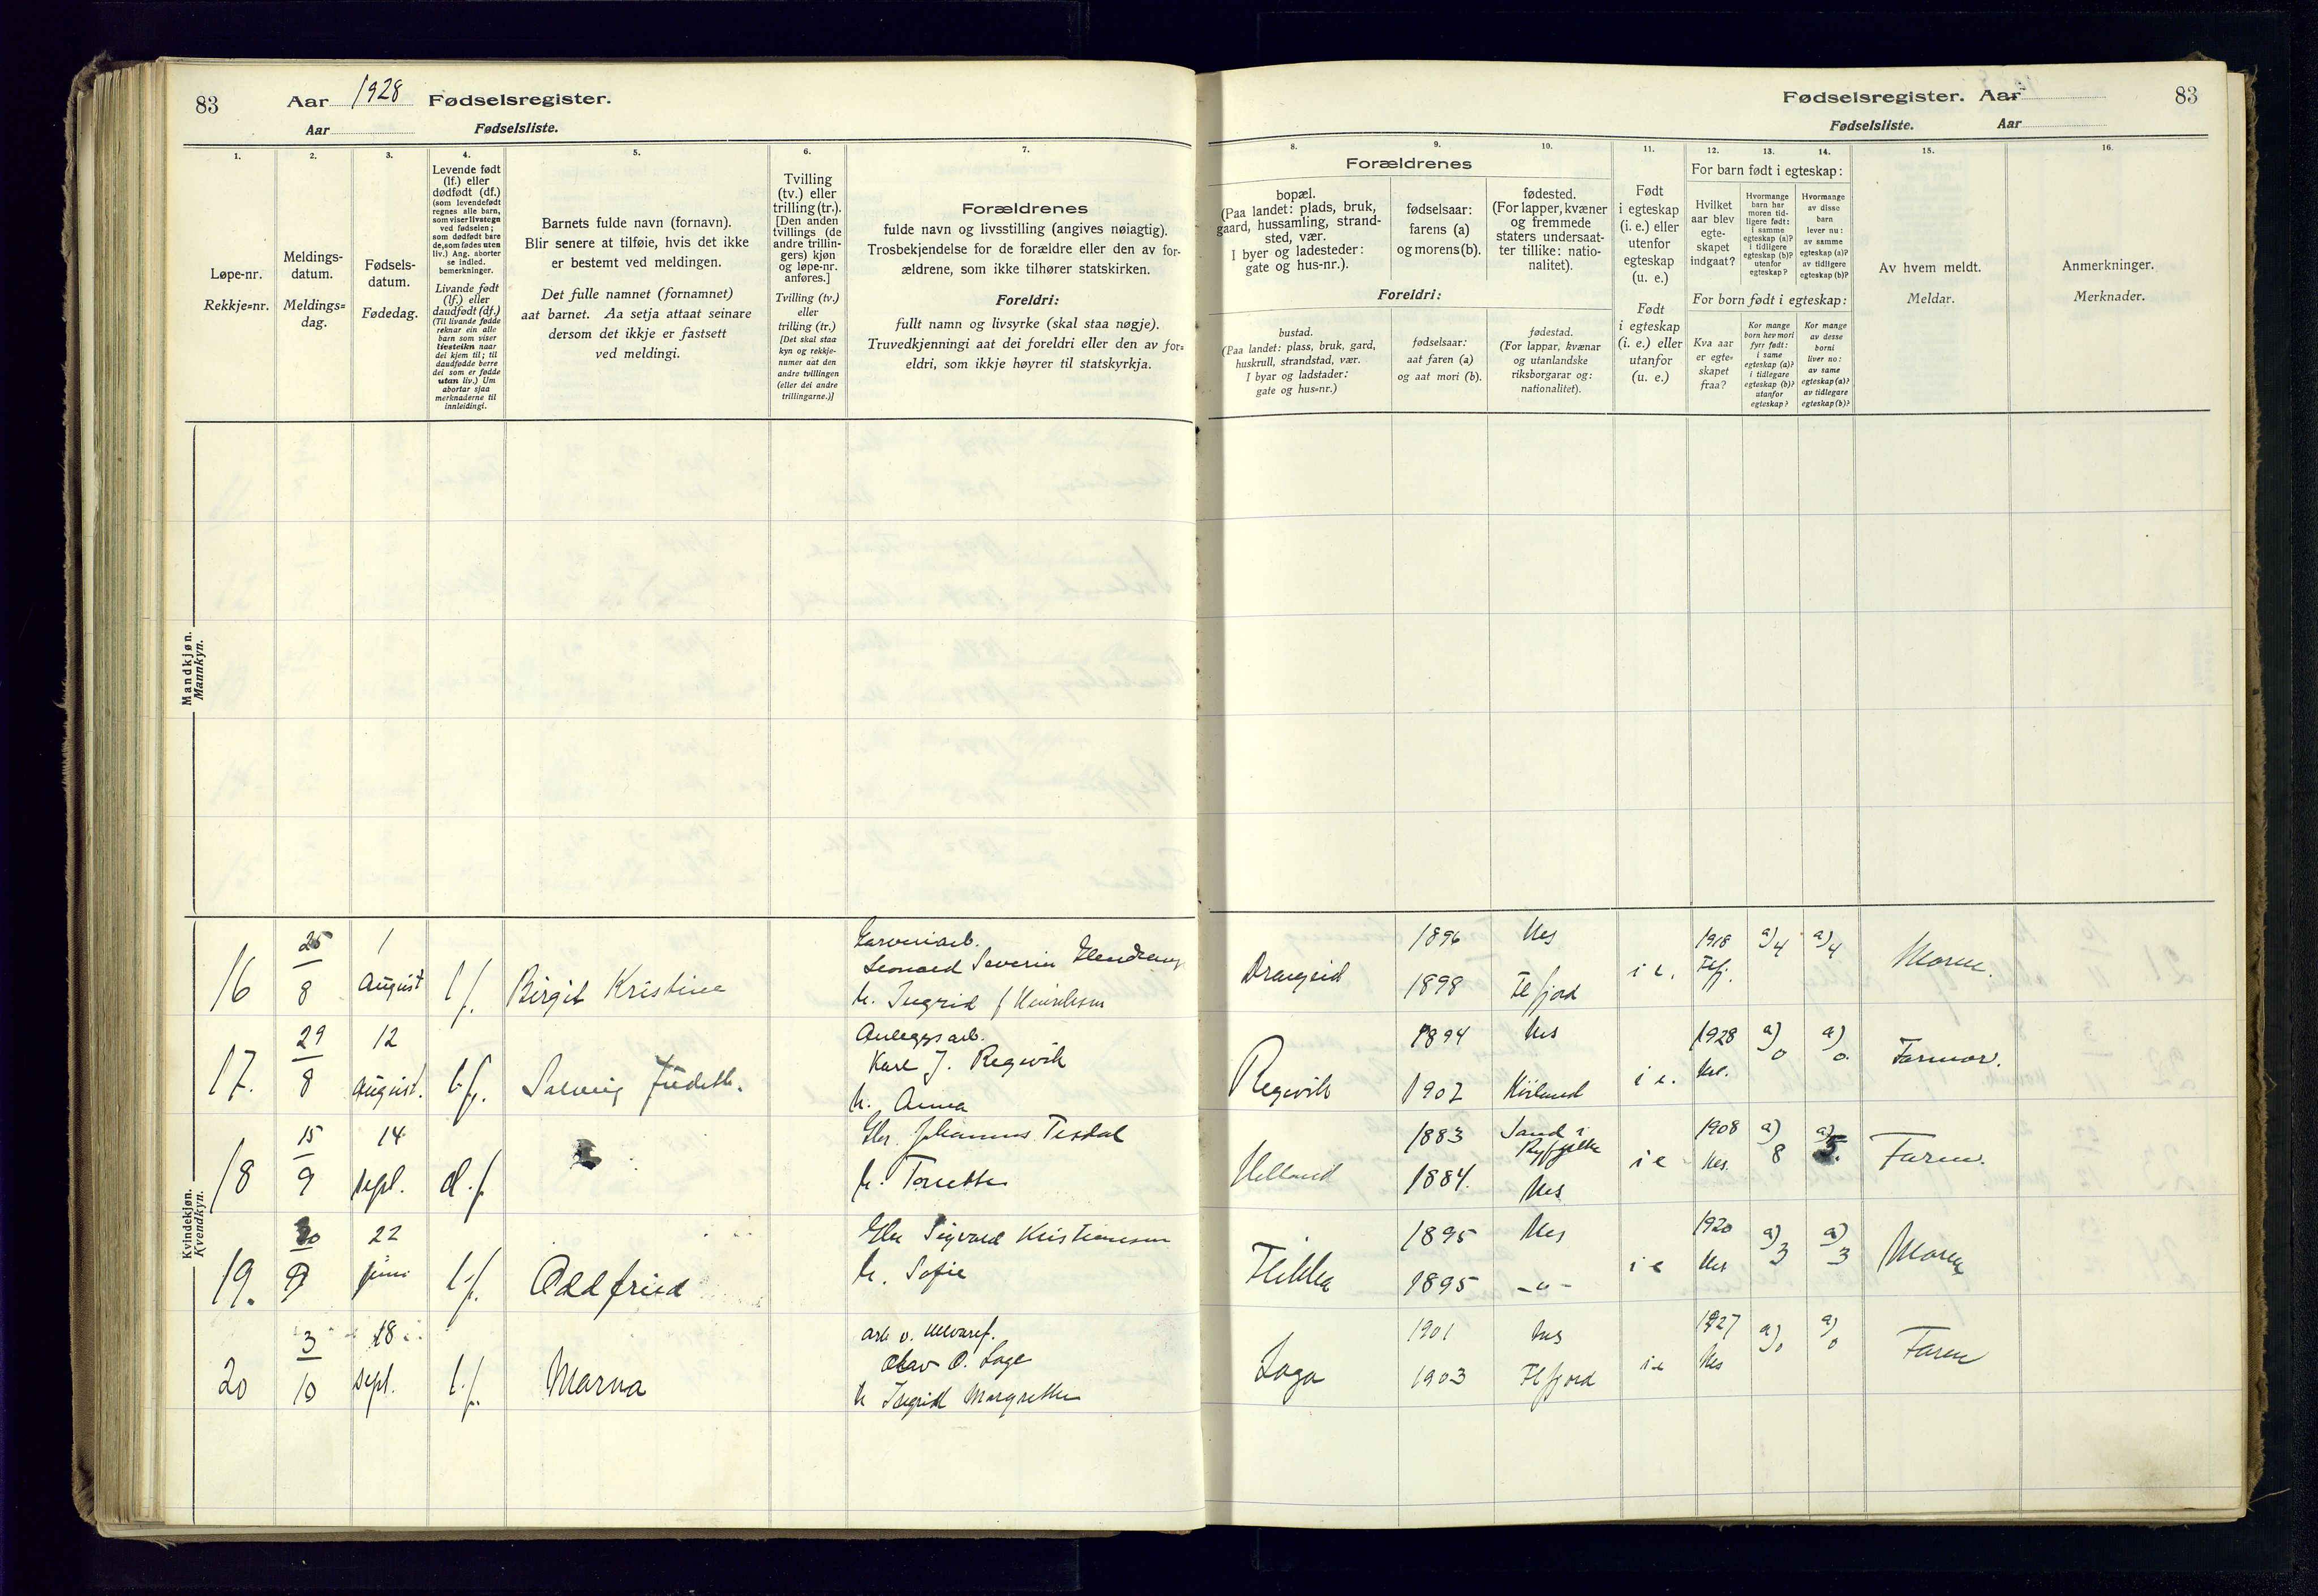 83
Aar 1928 Fødselsregister.
Aar Fødselsliste.
1.
2.
3.
4.
5.
6.
7.
Løpe-nr.
Rekkje=nr.
Meldings-
datum.
Meldings=
dag.
Fødsels-
datum.
Fødedag.
Levende født
(lf.) eller
dødfødt (df.)
(som levendefødt
regnes alle barn,
som viser livstegn
ved fødselen;
som dødfødt bare
de, som fødes uten
liv.) Ang. aborter
se indled.
bemerkninger.
Livande født
(lf.) eller
daudfødt (df.)
(Til livande fødde
reknar ein alle
barn som viser
livsteikn naar
dei kjem til; til
daudfødde berre
dei som er fødde
utan liv.) Um
abortar sjaa
merknaderne til
innleidingi.
Barnets fulde navn (fornavn).
Blir senere at tilføie, hvis det ikke
er bestemt ved meldingen.
Det fulle namnet (fornamnet)
aat barnet. Aa setja attaat seinare
dersom det ikkje er fastsett
ved meldingi.
Tvilling
(tv.) eller
trilling (tr.).
[Den anden
tvillings (de
andre trillin-
gers) kjøn
og løpe-nr.
anføres.]
Tvilling (tv.)
eller
trilling (tr.)
[Det skal staa
kyn og rekkje-
numer aat den
andre tvillingen
(eller dei andre
trillingarne.)]
Forældrenes
fulde navn og livsstilling (angives nøiagtig).
Trosbekjendelse for de forældre eller den av for-
ældrene, som ikke tilhører statskirken.
Foreldri:
fullt namn og livsyrke (skal staa nøgje).
Truvedkjenningi aat dei foreldri eller den av for=
eldri, som ikkje høyrer til statskyrkja.
Fødselsregister. Aar 83
Fødselsliste. Aar
8.
9.
10.
11.
12.
13.
14.
15.
16.
Forældrenes
bopæl.
(Paa landet: plads, bruk,
gaard, hussamling, strand-
sted, vær.
I byer og ladesteder:
gate og hus-nr.).
fødselsaar:
farens (a)
og morens (b).
fødested.
(For lapper, kvæner
og fremmede
staters undersaat-
ter tillike: natio-
nalitet).
Foreldri:
bustad.
(Paa landet: plass, bruk, gard,
huskrull, strandstad, vær.
I byar og ladstader:
gate og hus=nr.)
fødselsaar:
aat faren (a)
og aat mori (b).
fødestad.
(For lappar, kvænar
og utanlandske
riksborgarar og:
nationalitet).
Født
i egteskap
(i. e.) eller
utenfor
egteskap
(u. e.)
Født
i egteskap
(i. e.) eller
utanfor
(u. e.)
For barn født i egteskap:
Hvilket
aar blev
egte-
skapet
indgaat?
Hvormange
barn har
moren tid-
ligere født:
i samme
egteskap (a)?
i tidligere
egteskap (b)?
utenfor
egteskap?
Hvormange
av disse
barn
lever nu:
av samme
egteskap (a)?
av tidligere
egteskap (b)?
For born født i egteskap:
Kva aar
er egte=
skapet
fraa?
Kor mange
born hev mori
fyrr født:
i same
egteskap (a)?
i tidlegare
egteskap (b)?
utanfor
egteskap?
Kor mange
av desse
borni
liver no:
av same
egteskap (a)?
av tidlegare
egteskap (b)?
Av hvem meldt.
Meldar.
Anmerkninger.
Merknader.
Mandkjøn.
Mannkyn.
Kvindekjøn.
Kvendkyn.
16 25/8 1 August l.f. Birgit Kristine
Leonard Severin
h. Ingrid f Henriksen
Drangeid 1896 Nes
1898 Flefjord
i e. 1918 Flfj. a) 4 a) 4 Moren.
17. 29/8 12 August. l.f. Solveig Judith.
Anleggsarb.
Karl J. Regevik
h. Anna
Regevik 1894 Nes
1902
i e. 1928 a) 0 a) 0. Farmor.
18 15/9 14 sept. d.f.
Johannes Tesdal
h. Tonette
Helland 1883 Sand i
Ryfylke
1884. Nes
i e 1908 Nes. a) 8 a) 5. Faren.
19. 22 juni l.f. Oddfrid
Sigvard Kristiansen
h. Sofie
Flikka 1895 Nes
1895 -"-
i e 1920 Nes a) 3 a) 3 Moren
20 3/10 18 sept. l.f. Marna
arb v.
Olav O. Loge
h Ingrid Margrethe
Loga 1901 Nes
1903 Flfjord
i e 1927 Nes a) 0 a) 0 Faren